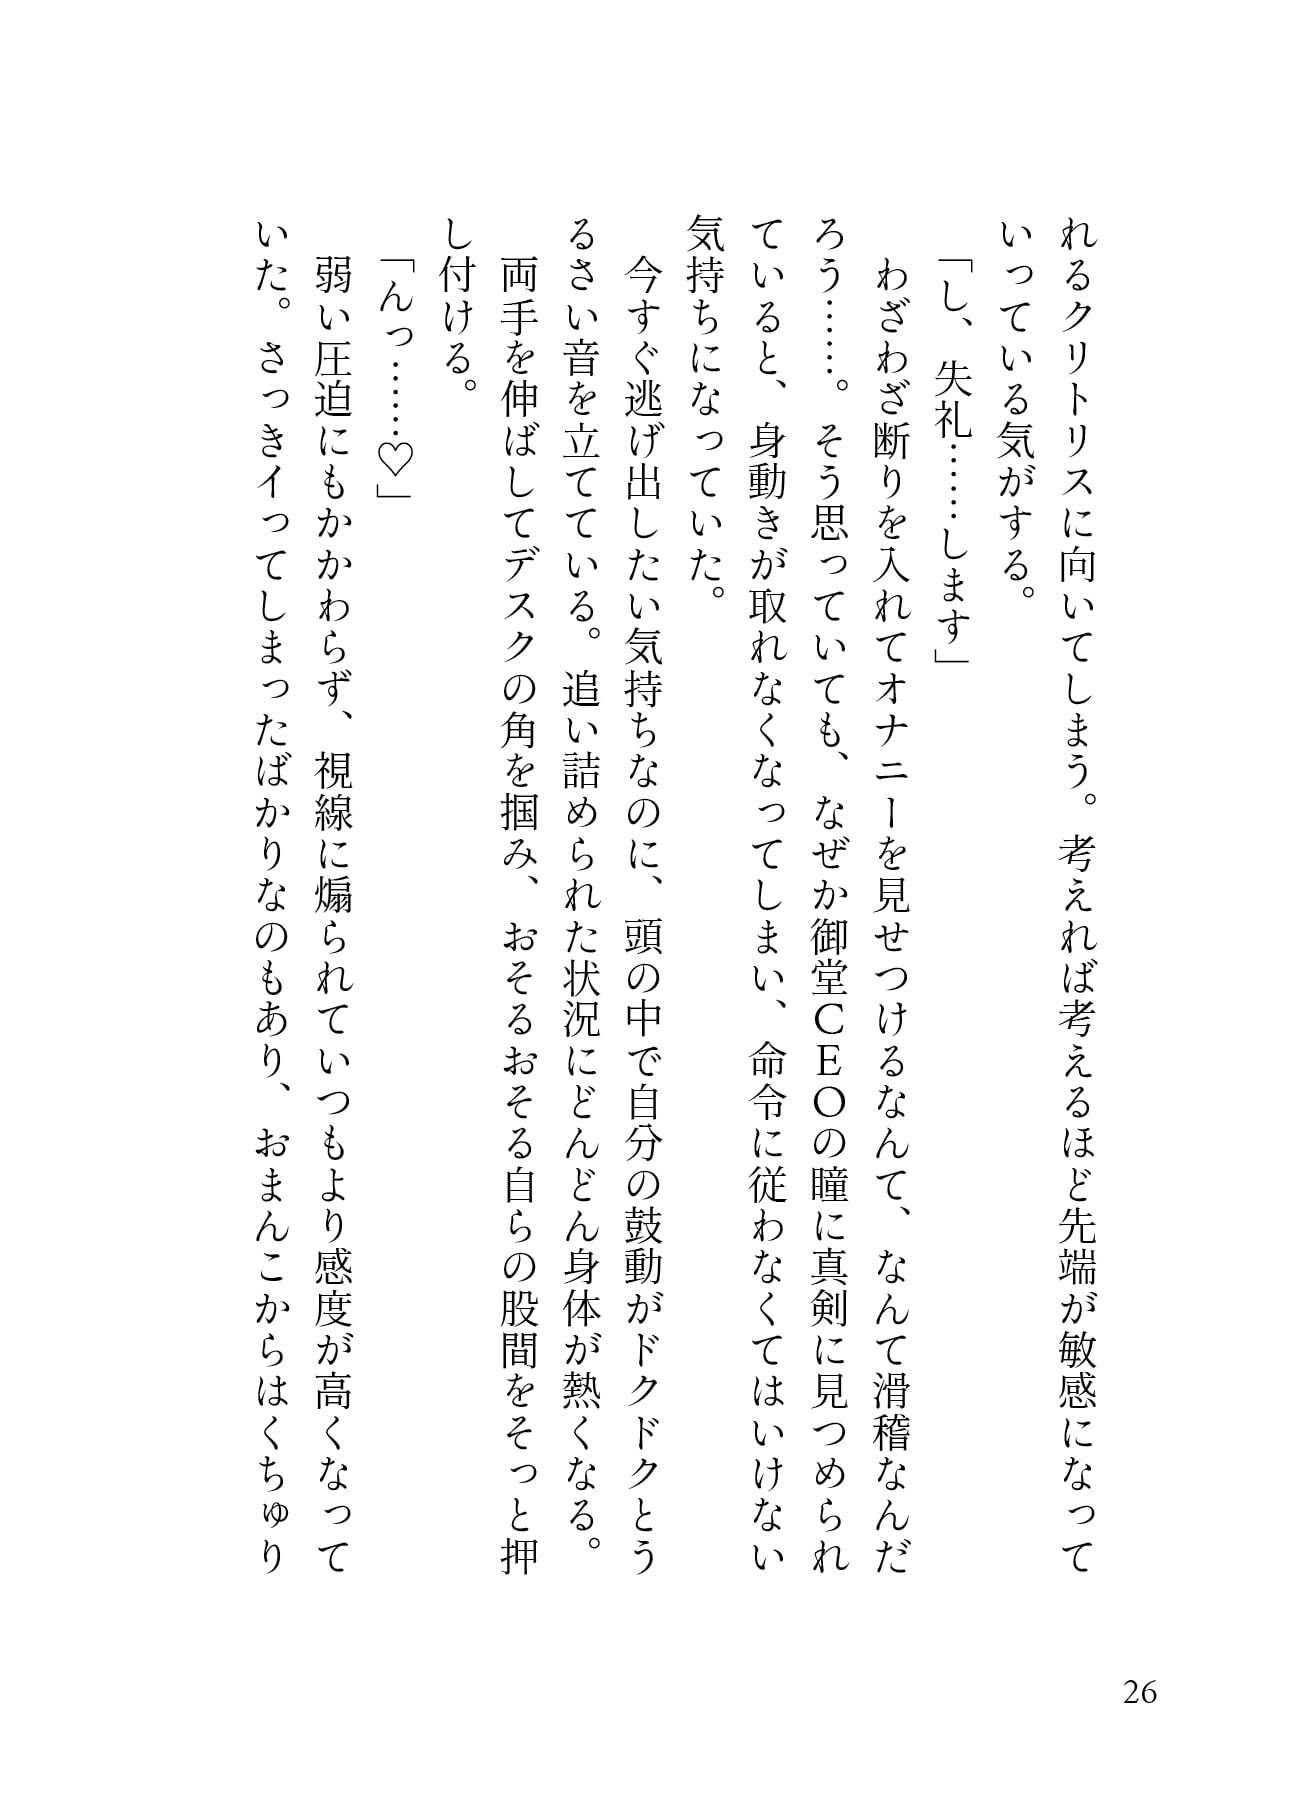 れるクリトリスに向いてしまう。考えれば考えるほど先端が敏感になって
いっている気がする。
「し、失礼……します」
わざわざ断りを入れてオナニーを見せつけるなんて、なんて滑稽なんだ
ろう……。そう思っていても、なぜか御堂ＣＥＯの瞳に真剣に見つめられ
ていると、身動きが取れなくなってしまい、命令に従わなくてはいけない
気持ちになっていた。
今すぐ逃げ出したい気持ちなのに、頭の中で自分の鼓動がドクドクとう
るさい音を立てている。追い詰められた状況にどんどん身体が熱くなる。
両手を伸ばしてデスクの角を掴み、おそるおそる自らの股間をそっと押
し付ける。
「んっ……♡」
弱い圧迫にもかかわらず、視線に煽られていつもより感度が高くなって
いた。さっきイってしまったばかりなのもあり、おまんこからはくちゅり
26